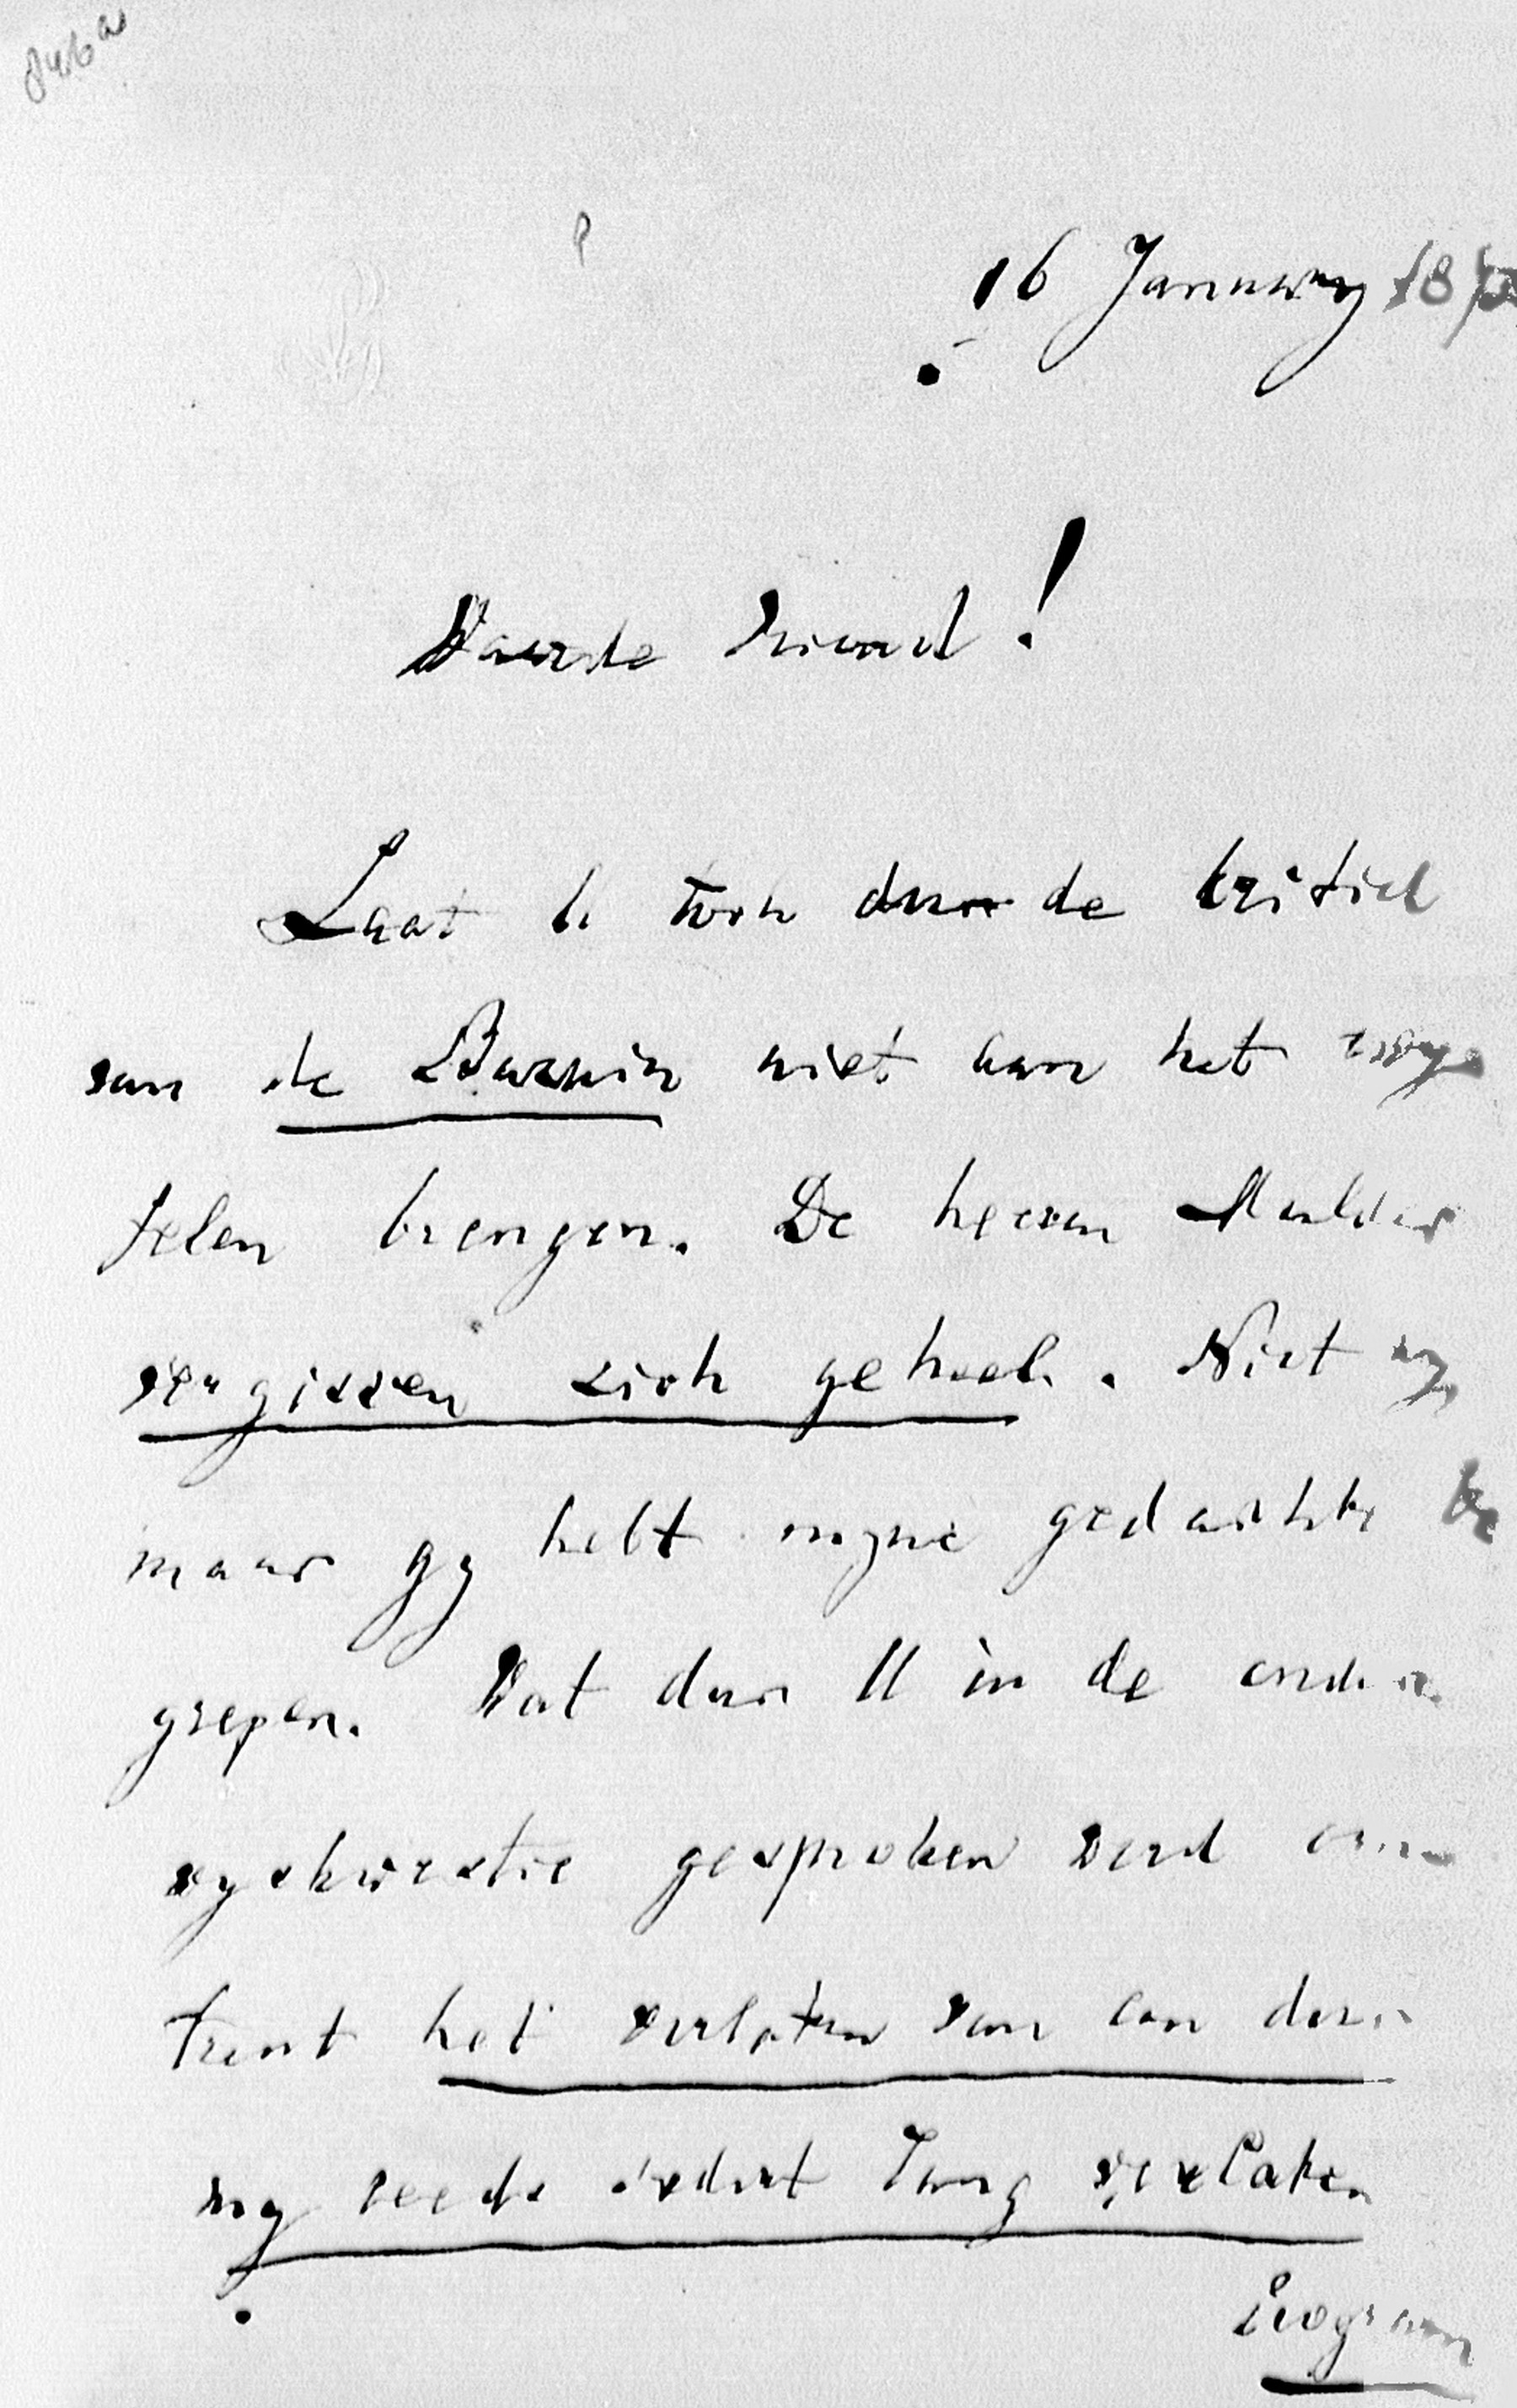 16 January 18
Waarde Vriend!
Laat U toch door de kritiek
van de Bazuin niet aan het
telen brengen. De heeren Mulder
vergissen zich geheel. Niet zy,
maar gy hebt myne gedachte be
grepen. Wat door U in de onder
wyskwestie gesproken werd om
trent het verlaten van een door
my reeds sedert lang verlaten
Program